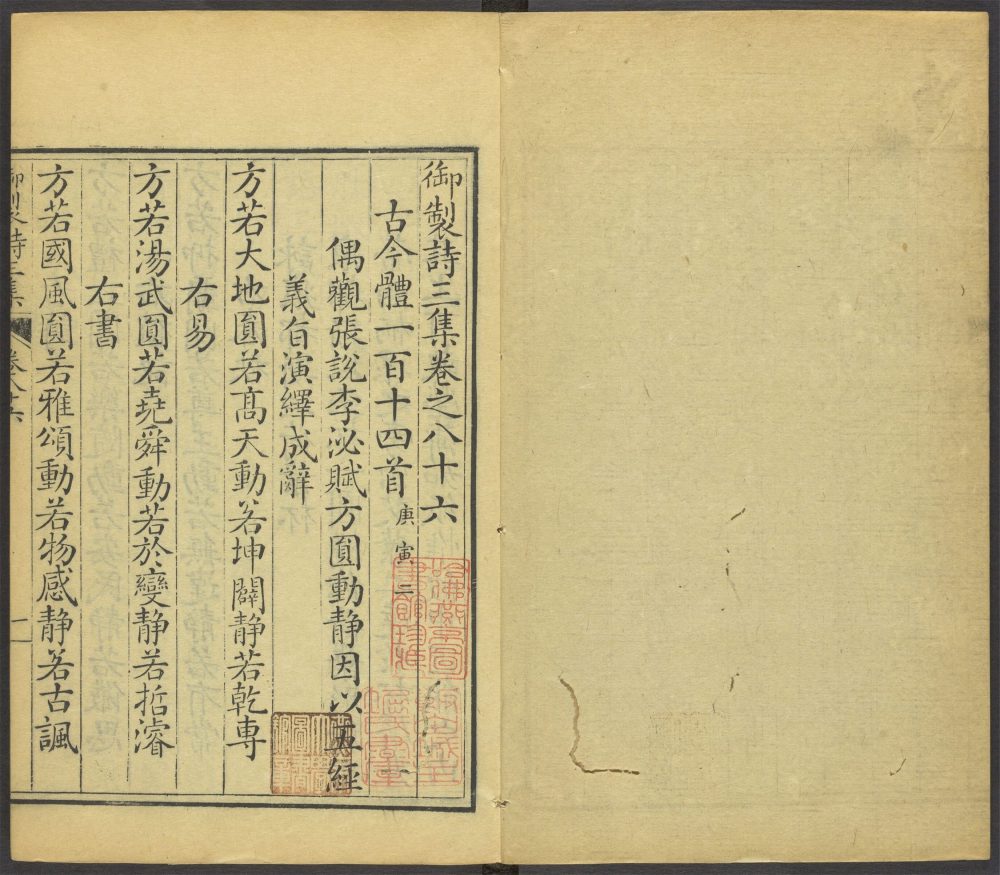 御製詩三集卷之八十六
古今體一百十四首 庚寅二
偶觀張說李泌賦方圓動静因以五經
義自演繹成辭
方若大地圓若高天動若坤闢静若乾專
右易
方若湯武圓若堯舜動若於變静若哲濬
右書
方若國風圓若雅頌動若物感静若古諷
御製詩三集
卷八十六
一